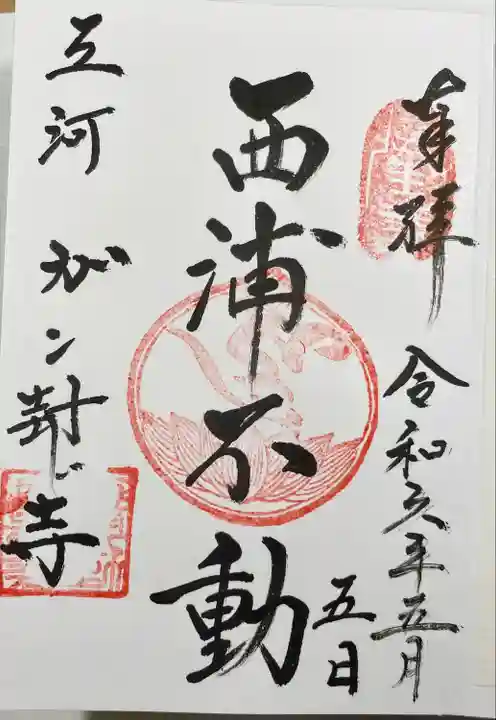 奉拝
令和六年五月
五日
西浦不動
三河
ガン封じ寺